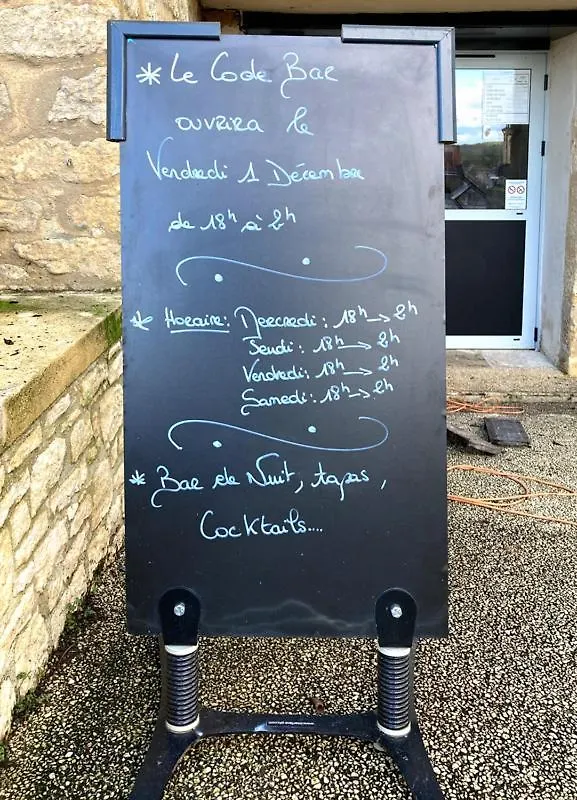 * Le Code Bar
ouvrira le
Vendredi 1 Décembre
de 18h à 2h
* Horaire: Mercredi: 18h → 2h
Jeudi: 18h → 2h
Vendredi: 18h → 2h
Samedi: 18h → 2h
* Bar de Nuit, tapas,
Cocktails....